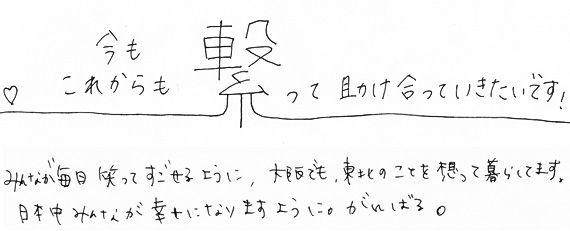 今も
これからも 繋って助け合っていきたいです!
みんなが毎日笑ってすごせるように、大阪でも、東北のことを想って暮らしてます。
日本中みんなが幸せになりますように。がんばる。